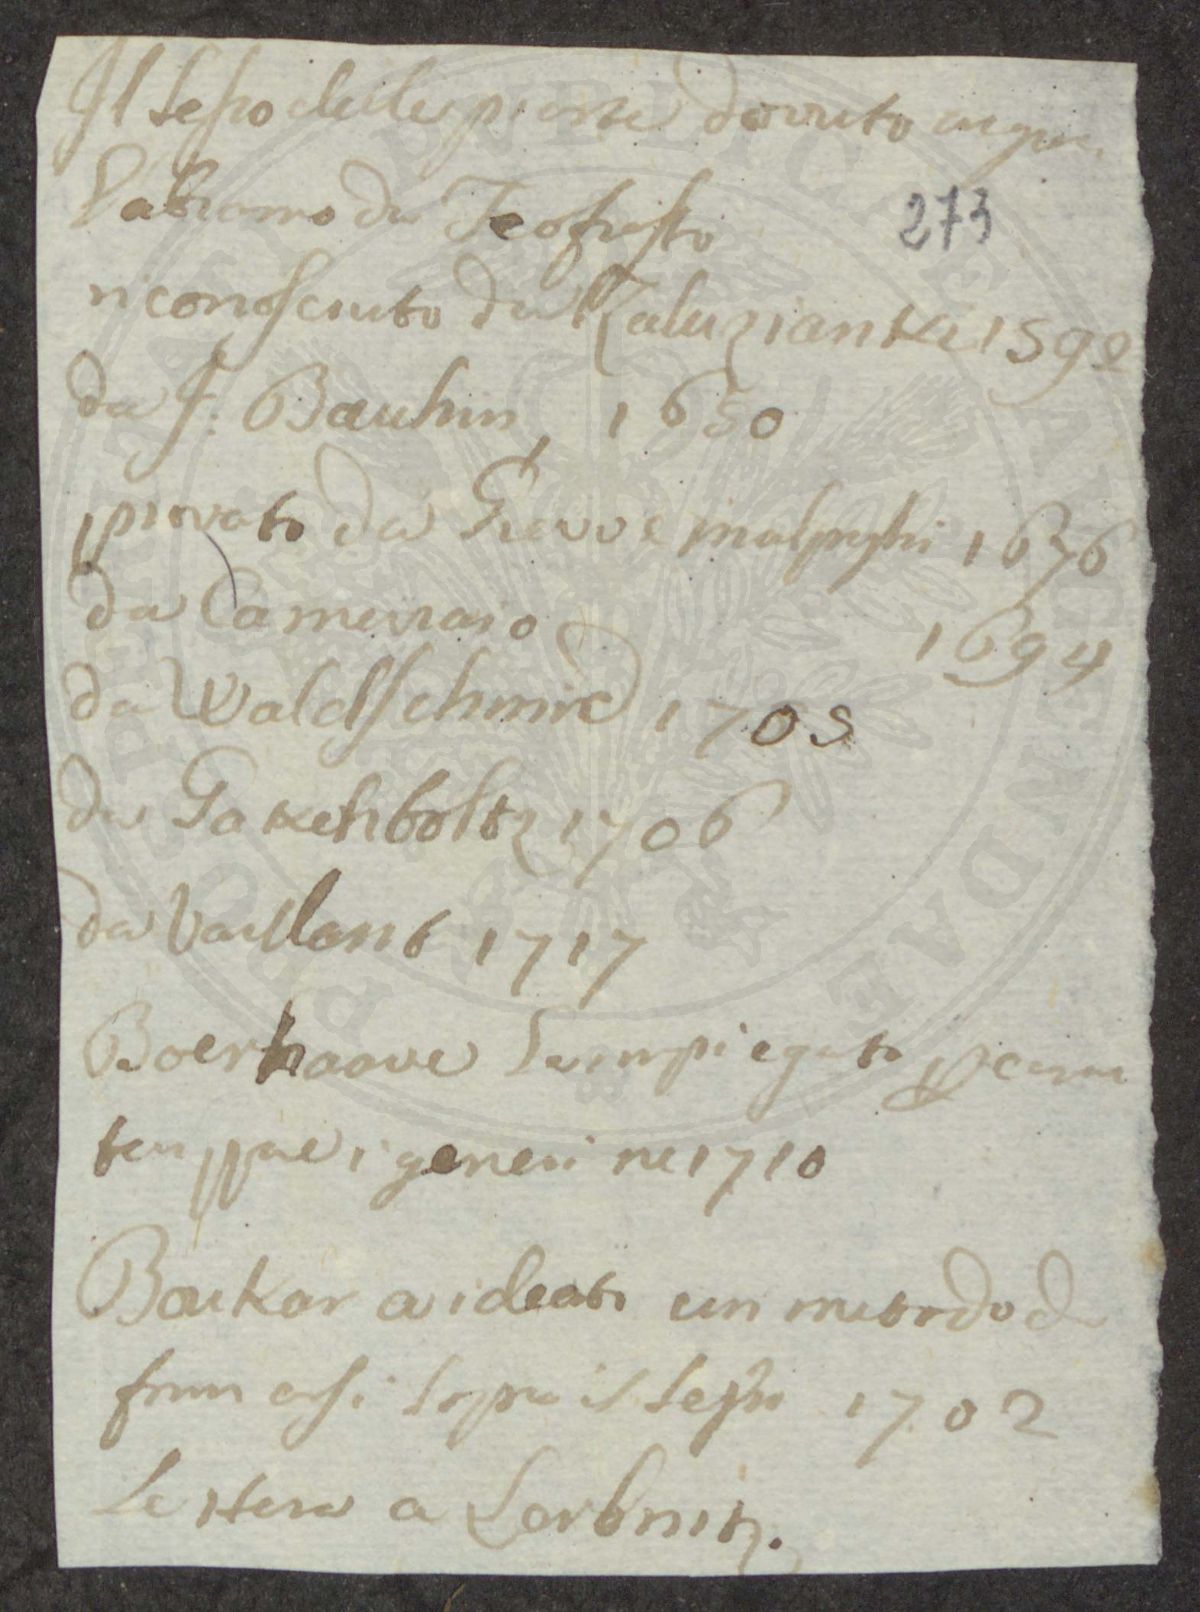 Il sesso delle piante
273
da Teofrasto
riconosciuto da Zaluzianski 1592
da J. Bauhin 1650
provato da Grevv e malpighi 1676
da Camerario 1694
da Waldschmid 1705
da Gakenholtz 1706
da Vaillant 1717
Boerhaave impiegato
i generi ne 1710
Burkar a ideato un metodo di
sopra il sesso 1702
Lettera a Leibnitz.